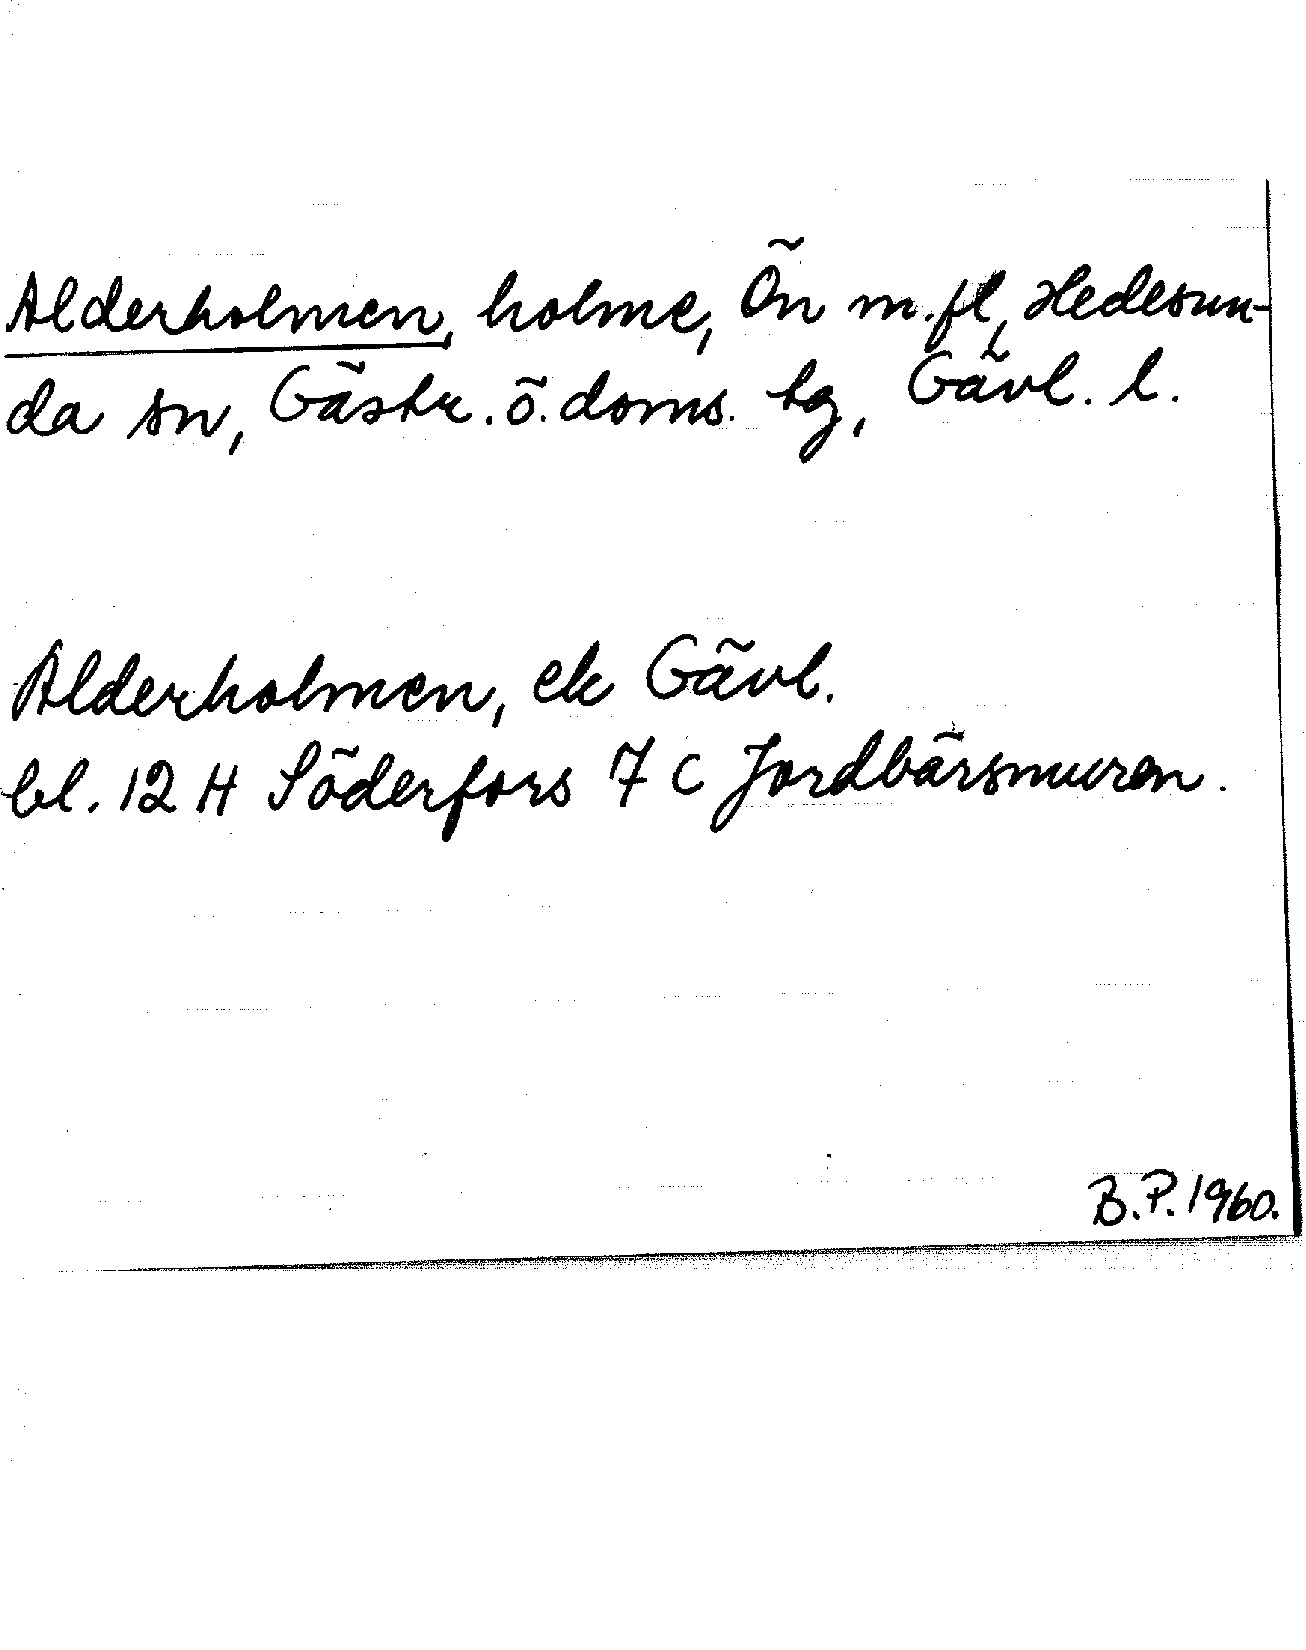 Alderholmen, holme, Ön m.fl, Hedesun-
da sn, Gästr. ö. doms. tg, Gävl. l.
Alderholmen, ek Gävl.
bl. 12 H Söderfors 7 C Jordbärsmuren.
B.P. 1960.